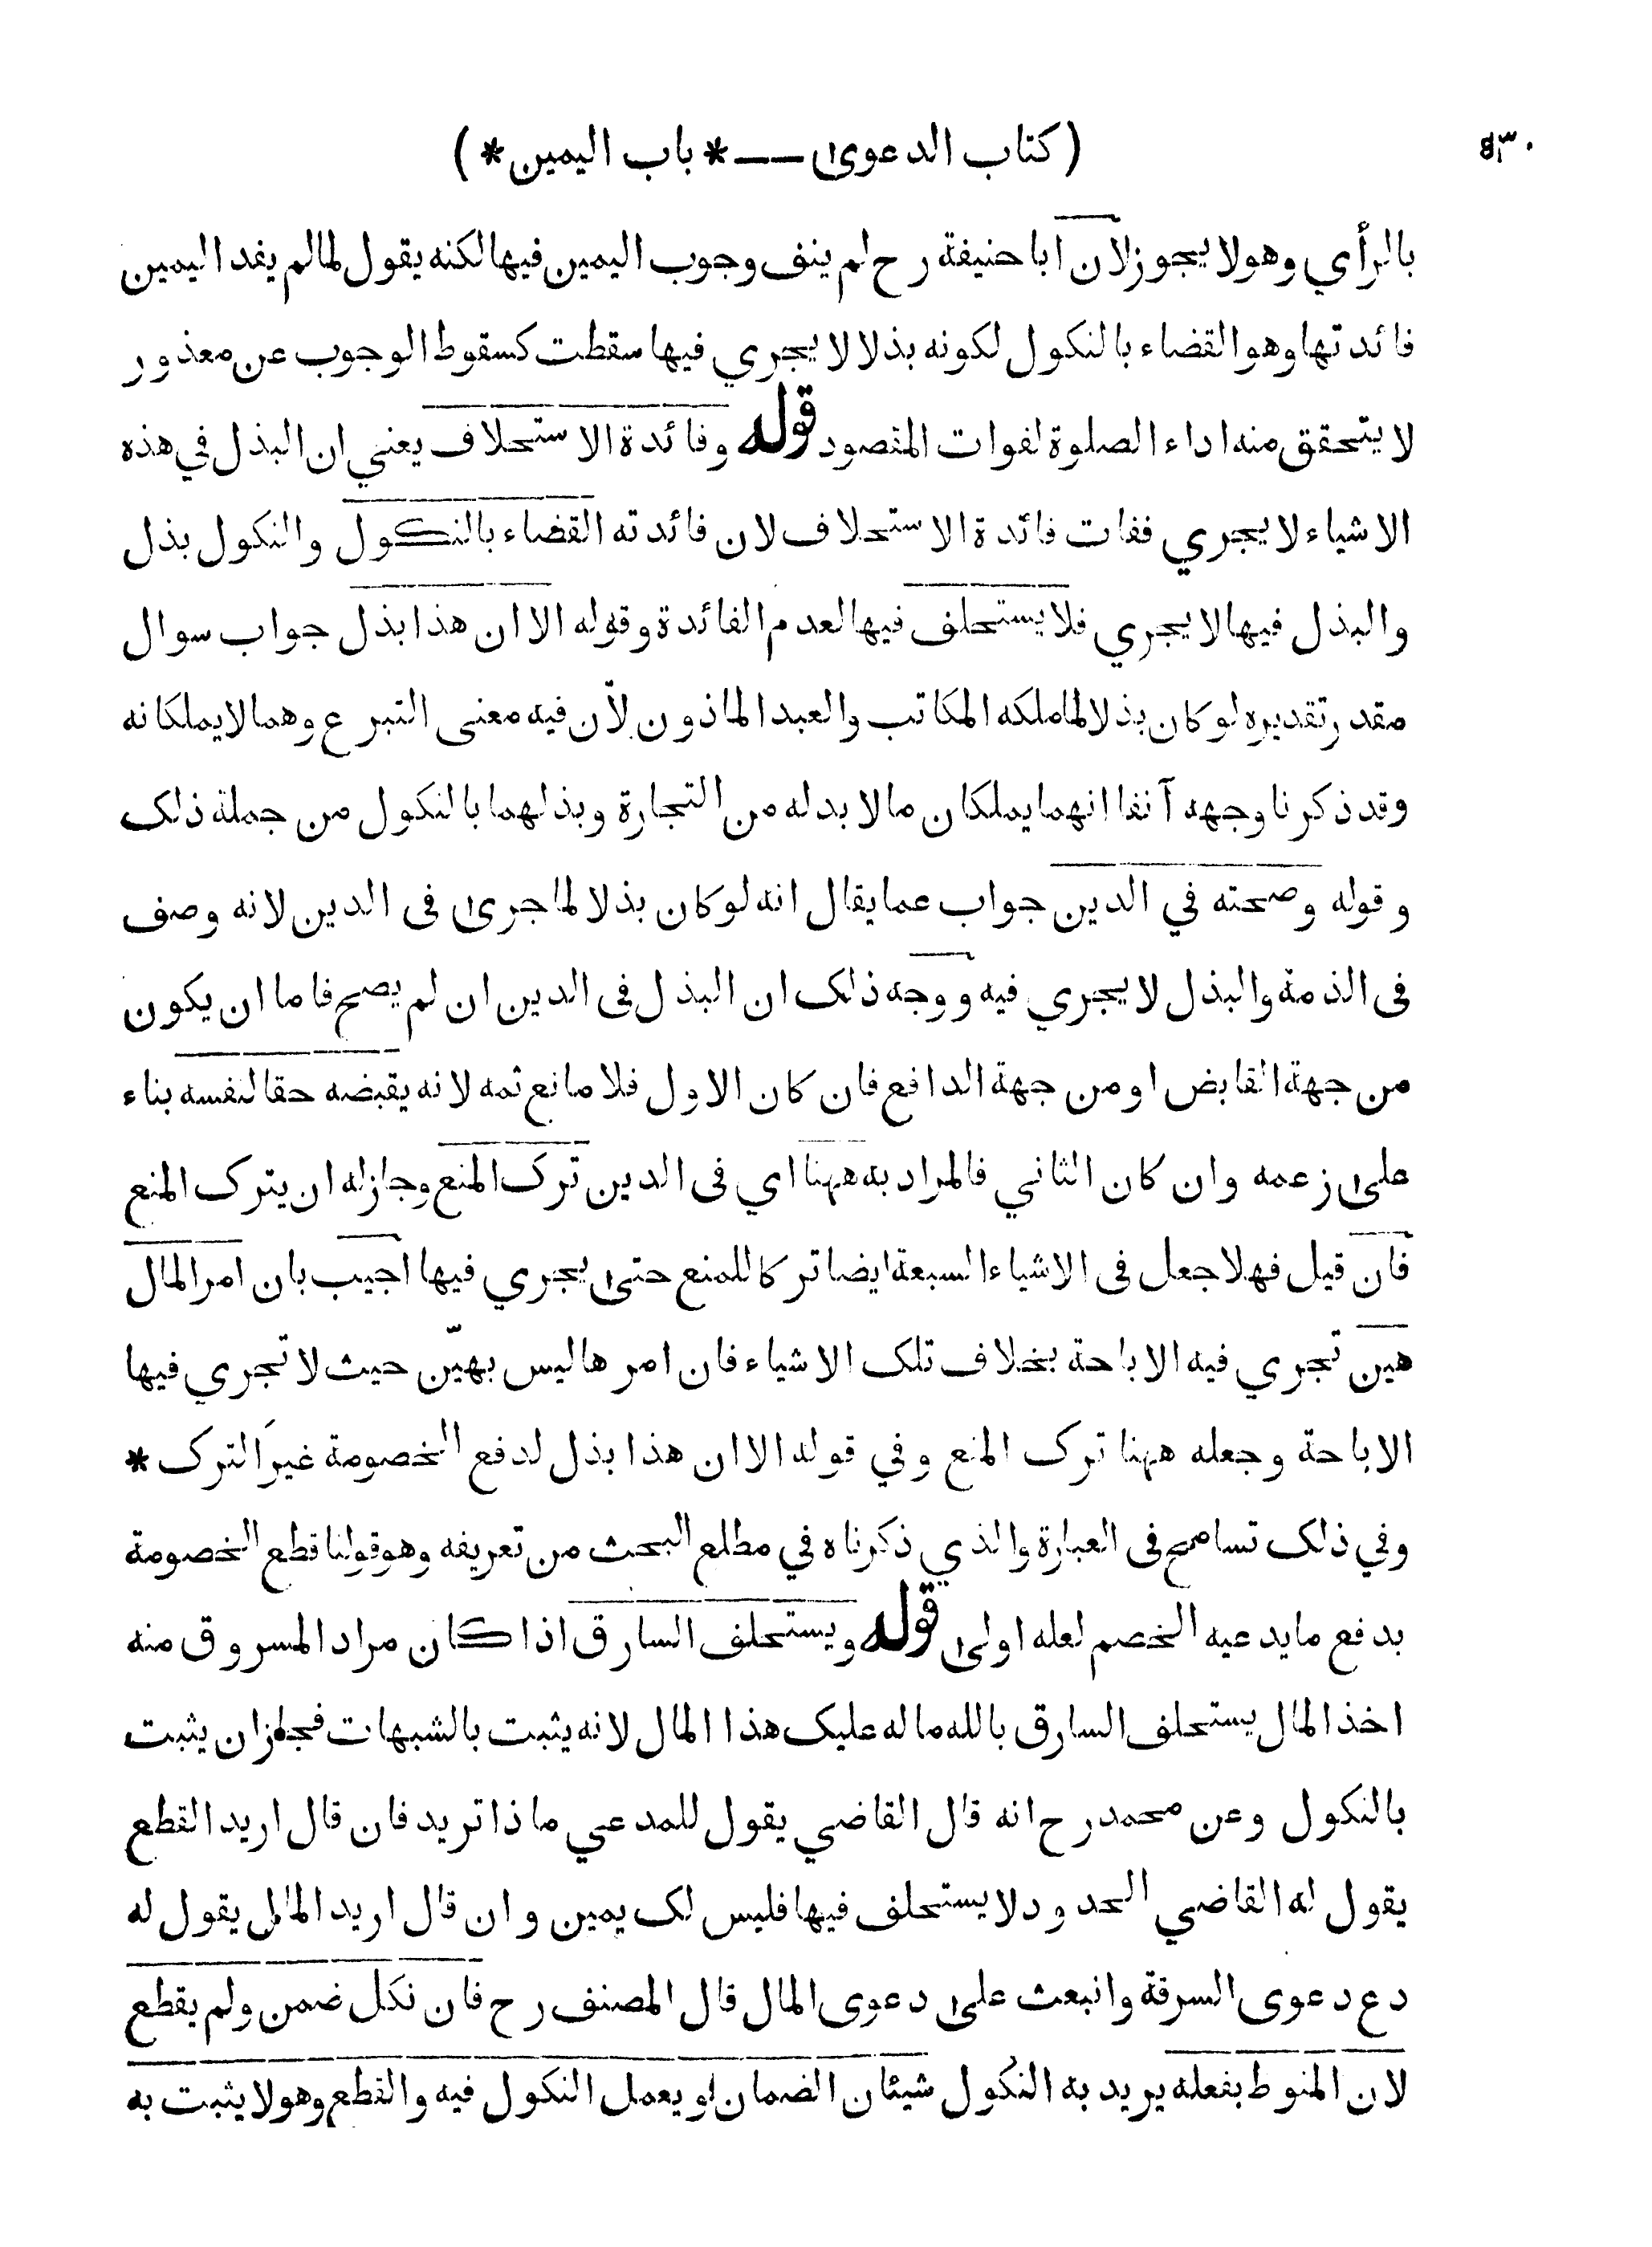 (كتاب الدعوى —— * باب اليمين *)
بالرأي وهو لا يجوز لان ابا حنيفة رح لم ينف وجوب اليمين فيها لكنه يقول لما لم يفد اليمين
فائدتها وهو القضاء بالنكول لكونه بذلا لا يجري فيها سقطت كسقوط الوجوب عن معذور
لا يتحقق منه اداء الصلوة لفوات المقصود قوله وفائدة الاستحلاف يعني ان البذل في هذه
الاشياء لا يجري ففات فائدة الاستحلاف لان فائدته القضاء بالنكول والنكول بذل
والبذل فيها لا يجري فلا يستحلف فيها لعدم الفائدة وقوله الا ان هذا بذل جواب سوال
مقدر تقديره لو كان بذلا لما ملكه المكاتب والعبد الماذون لأن فيه معنى التبرع وهما لا يملكانه
وقد ذكرنا وجهه آنفا انهما يملكان ما لا بد له من التجارة وبذلهما بالنكول من جملة ذلك
وقوله وصحته في الدين جواب عما يقال انه لو كان بذلا لما جرى في الدين لانه وصف
في الذمة والبذل لا يجري فيه ووجه ذلك ان البذل في الدين ان لم يصح فاما ان يكون
من جهة القابض او من جهة الدافع فان كان الاول فلا مانع ثمه لانه يقبضه حقا لنفسه بناء
على زعمه وان كان الثاني فالمراد به ههنا اي في الدين ترك المنع وجاز له ان يترك المنع
فان قيل فهلا جعل في الاشياء السبعة ايضا تركا للمنع حتى يجري فيها اجيب بان امر المال
هين تجري فيه الاباحة بخلاف تلك الاشياء فان امرها ليس بهيّن حيث لا تجري فيها
الاباحة وجعله ههنا ترك المنع وفي قوله الا ان هذا بذل لدفع الخصومة غيرَ الترك *
وفي ذلك تسامح في العبارة والذي ذكرناه في مطلع البحث من تعريفه وهو قولنا قطع الخصومة
بدفع ما يدعيه الخصم لعله اولى قوله ويستحلف السارق اذا كان مراد المسروق منه
اخذ المال يستحلف السارق بالله ما له عليك هذا المال لانه يثبت بالشبهات فجاز ان يثبت
بالنكول وعن محمد رح انه قال القاضي يقول للمدعي ماذا تريد فان قال اريد القطع
يقول له القاضي الحدود لا يستحلف فيها فليس لك يمين وان قال اريد المال يقول له
دع دعوى السرقة وانبعث على دعوى المال قال المصنف رح فان نكل ضمن ولم يقطع
لان المنوط بفعله يريد به النكول شيئان الضمان او يعمل النكول فيه والقطع وهو لا يثبت به